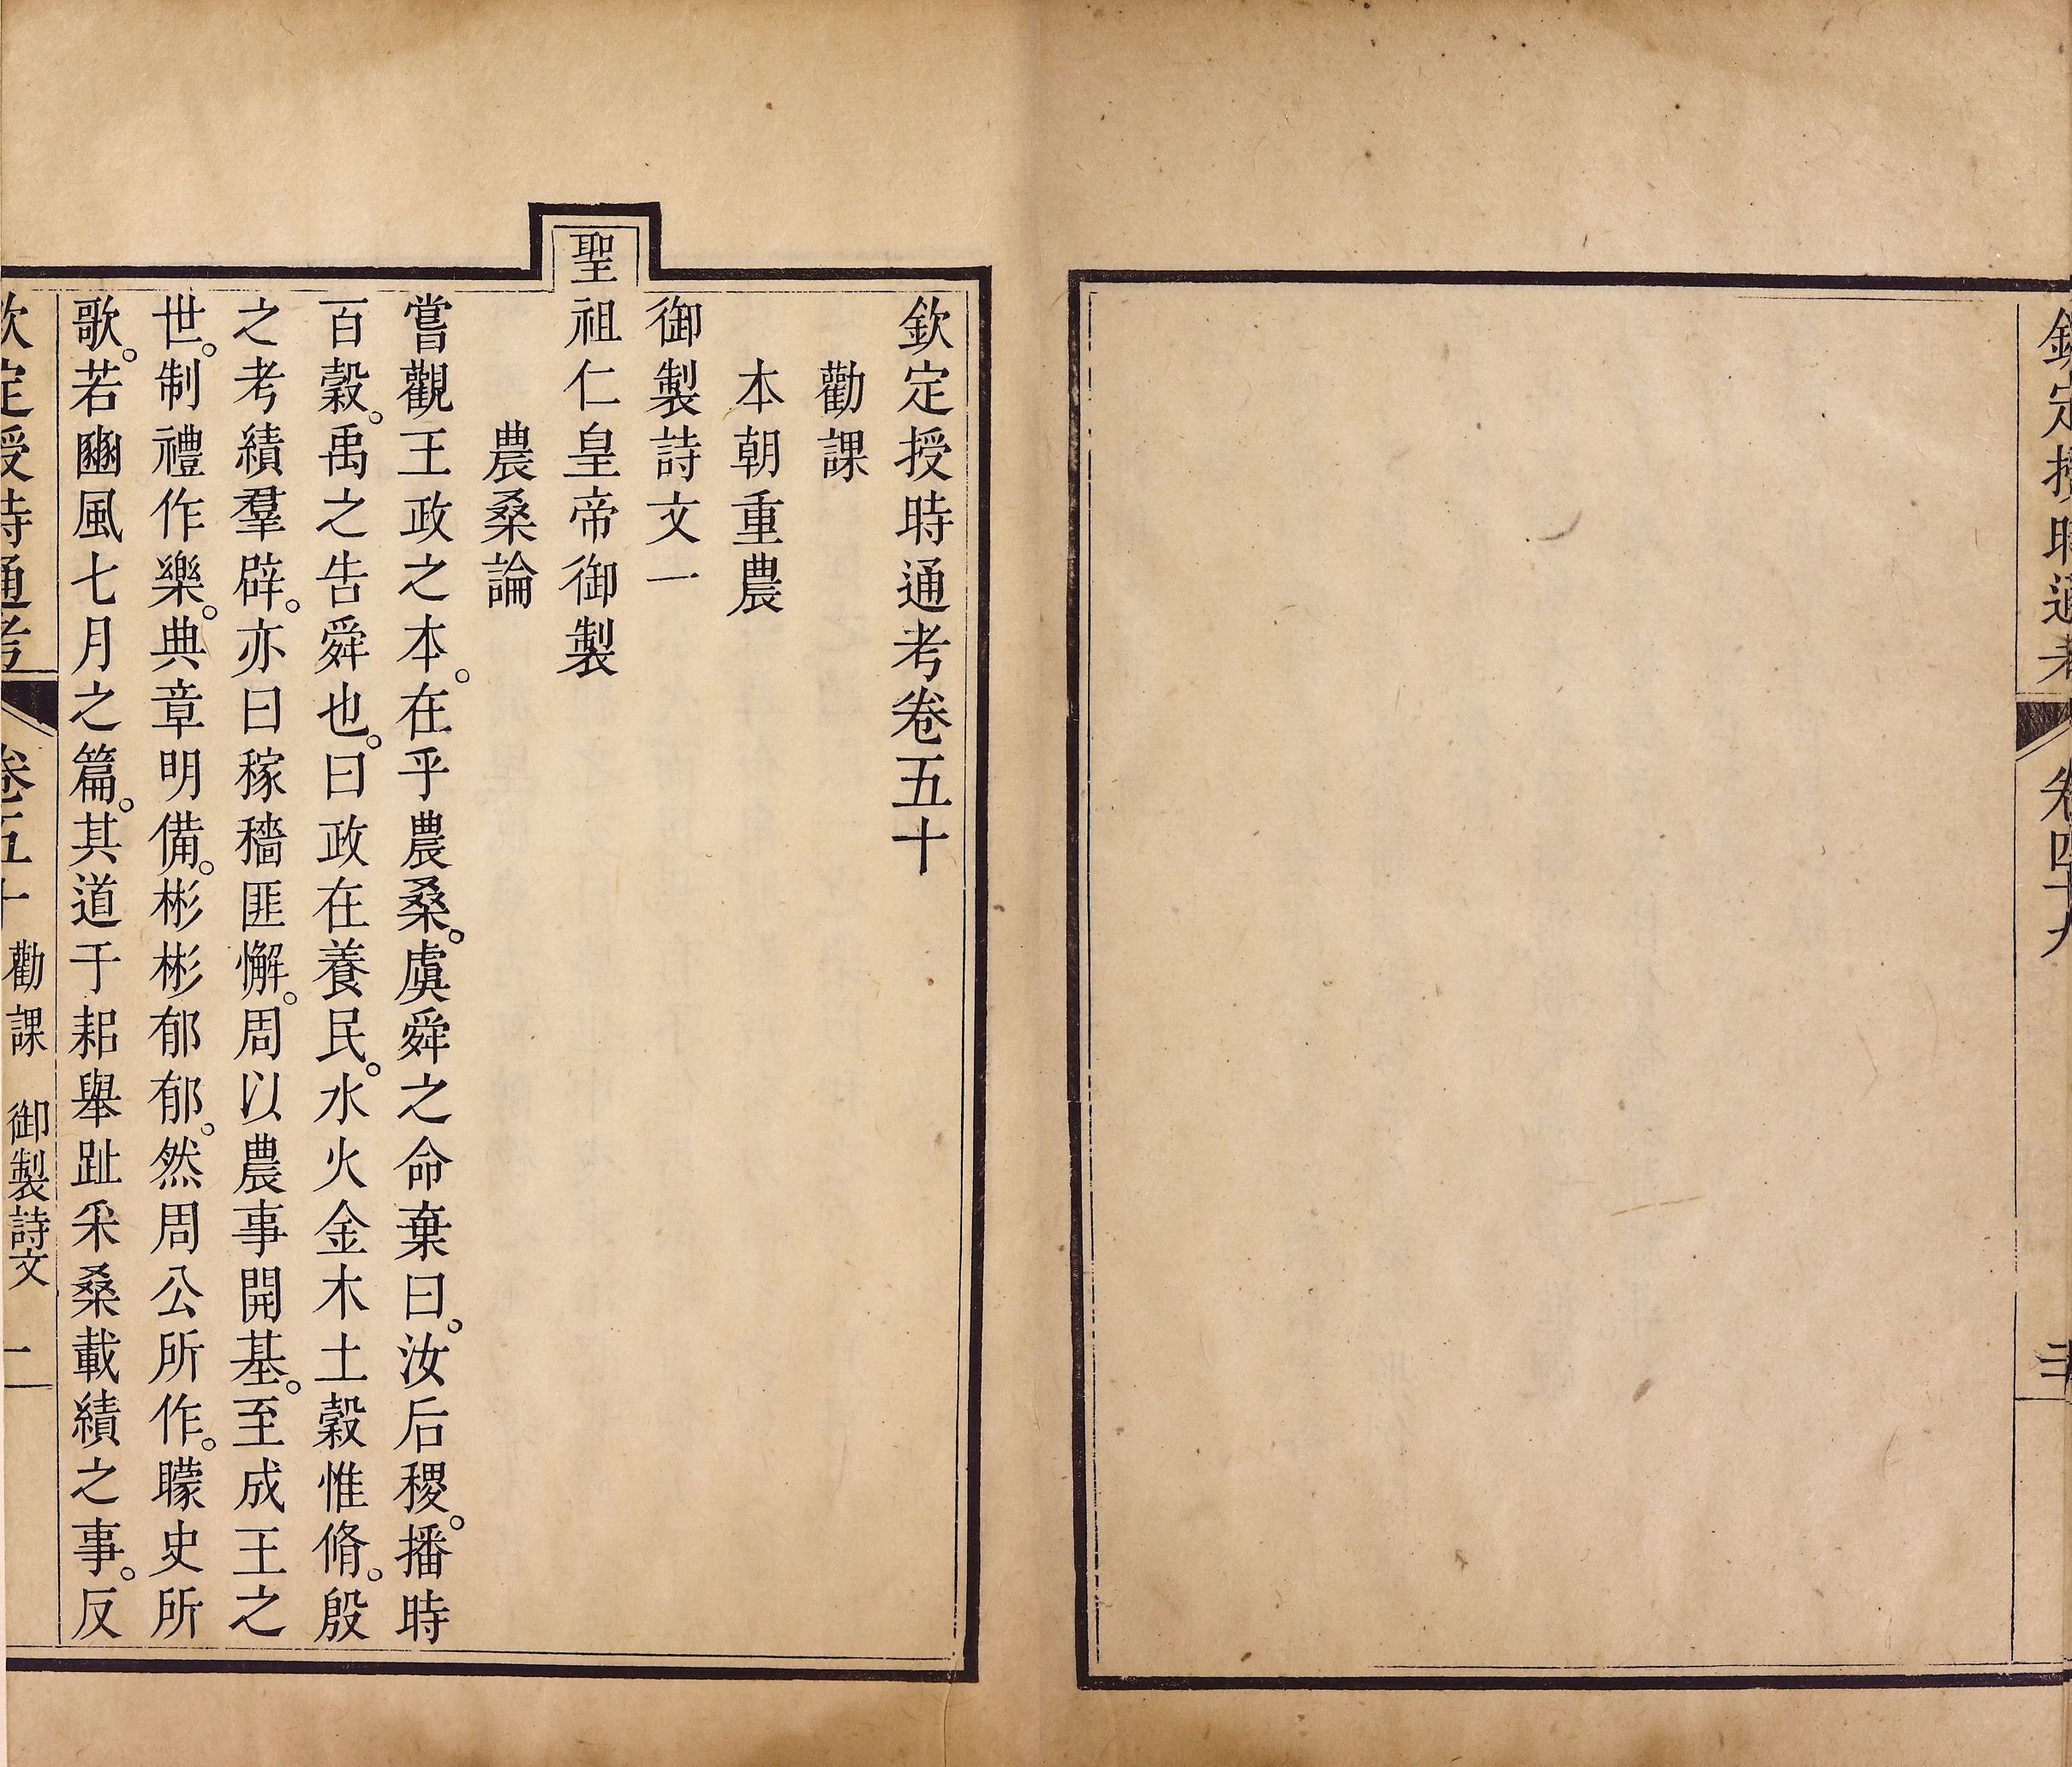 欽定授時通考
卷四十九
欽定授時通考卷五十
勸課
本朝重農
御製詩文一
聖祖仁皇帝御製
農桑論
嘗觀王政之本。在乎農桑。虞舜之命棄曰。汝后稷。播時
百穀。禹之告舜也。曰政在養民。水火金木土穀惟脩。殷
之考績羣辟。亦曰稼穡匪懈。周以農事開基。至成王之
世。制禮作樂。典章明備。彬彬郁郁。然周公所作。矇史所
歌。若豳風七月之篇。其道于耜舉趾采桑載績之事。反
欽定授時通考
卷五十
勸課
御製詩文
一